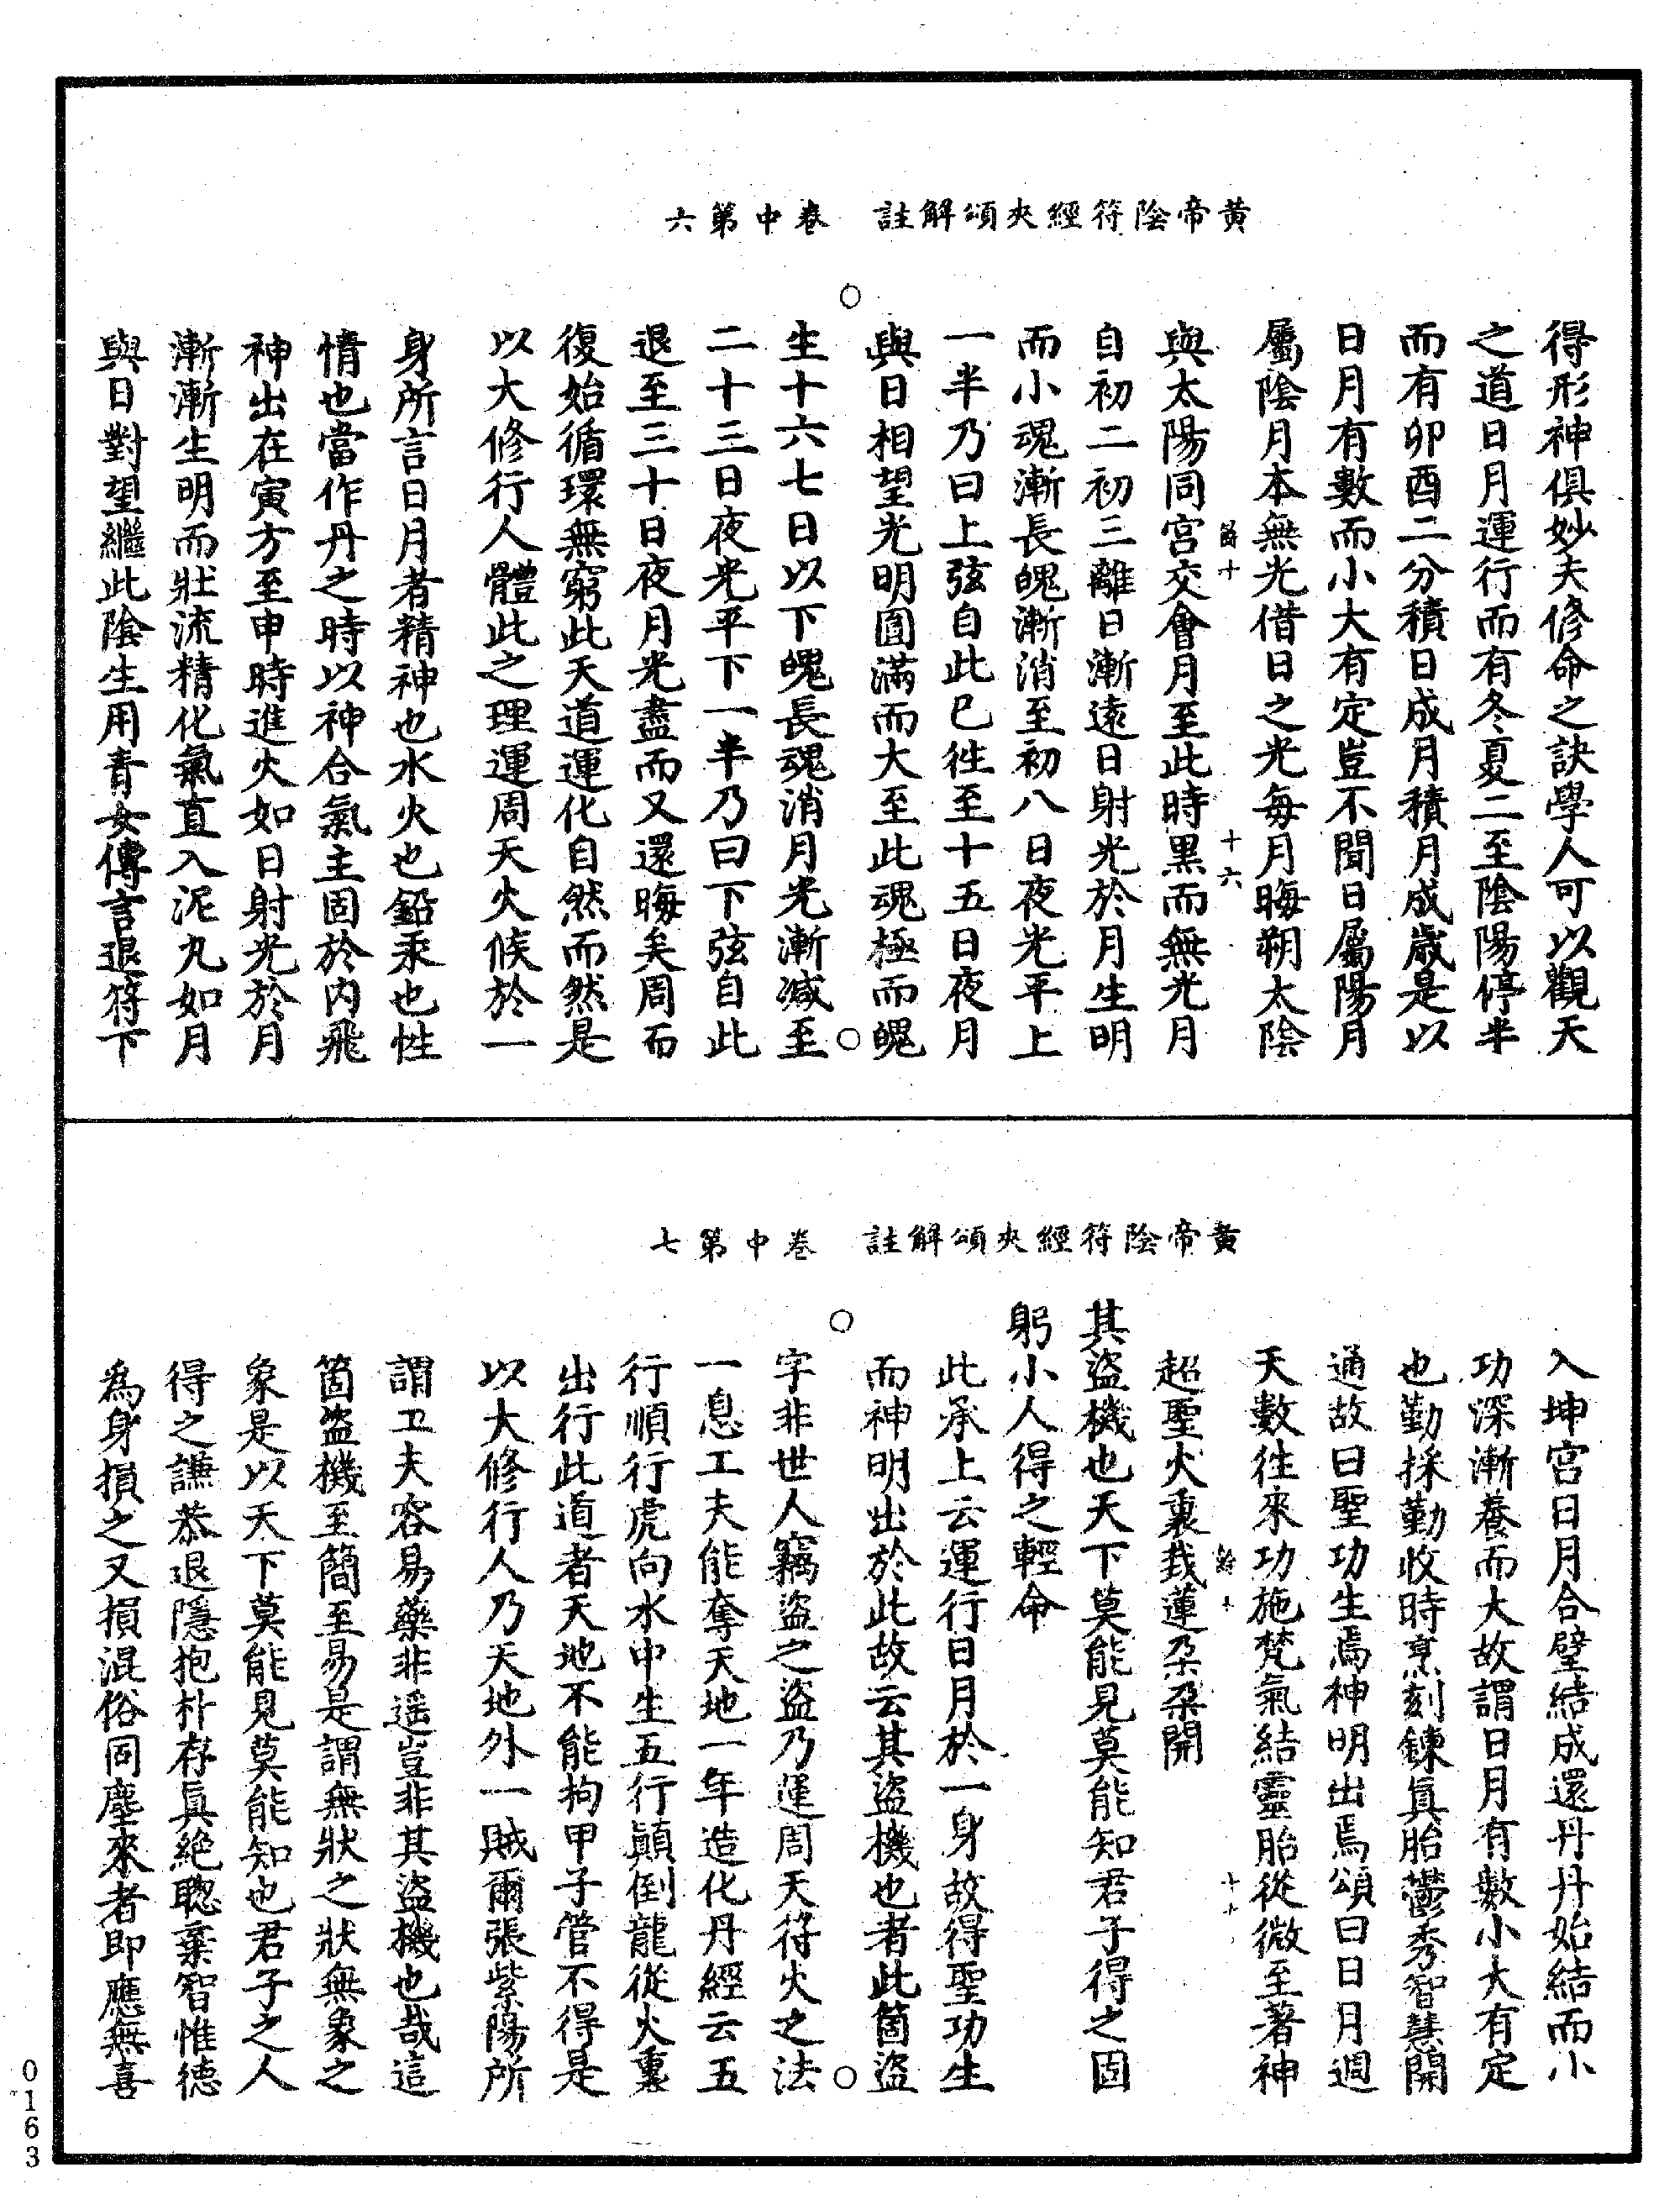 黃帝陰符經夾頌解註　卷中第六
得形神俱妙夫修命之訣學人可以觀天
之道日月運行而有冬夏二至陰陽停半
而有卯酉二分積日成月積月成歲是以
日月有數而小大有定豈不聞日屬陽月
屬陰月本無光借日之光每月晦朔太陰
十六
與太陽同宮交會月至此時黑而無光月
自初二初三離日漸遠日射光於月生明
而小魂漸長魄漸消至初八日夜光平上
一半乃曰上弦自此已徃至十五日夜月
與日相望光明圓滿而大至此魂極而魄
生十六七日以下魄長魂消月光漸減至
二十三日夜光平下一半乃曰下弦自此
退至三十日夜月光盡而又還晦矣周而
復始循環無窮此天道運化自然而然是
以大修行人體此之理運周天火候於一
身所言日月者精神也水火也鉛汞也性
情也當作丹之時以神合氣主固於内飛
神出在寅方至申時進火如日射光於月
漸漸生明而壯流精化氣直入泥丸如月
與日對望繼此陰生用青女傳言退符下
黃帝陰符經夾頌解註　卷中第七
入坤宮日月合璧結成還丹丹始結而小
功深漸養而大故謂日月有數小大有定
也勤採勤收時烹刻鍊真胎鬱秀智慧開
通故曰聖功生焉神明出焉頌曰日月週
天數往來功施梵氣結靈胎從微至著神
超聖火裏栽蓮朶朶開
其盜機也天下莫能見莫能知君子得之固
躬小人得之輕命
此承上云運行日月於一身故得聖功生
而神明出於此故云其盜機也者此箇盜
字非世人竊盜之盜乃運周天符火之法
一息工夫能奪天地一年造化丹經云五
行順行虎向水中生五行顛倒龍從火裏
出行此道者天地不能拘甲子管不得是
以大修行人乃天地外一賊爾張紫陽所
謂工夫容易藥非遥豈非其盜機也哉這
箇盜機至簡至易是謂無狀之狀無象之
象是以天下莫能見莫能知也君子之人
得之謙恭退隱抱朴存真絶聰棄智惟德
為身損之又損混俗同塵來者即應無喜
0163